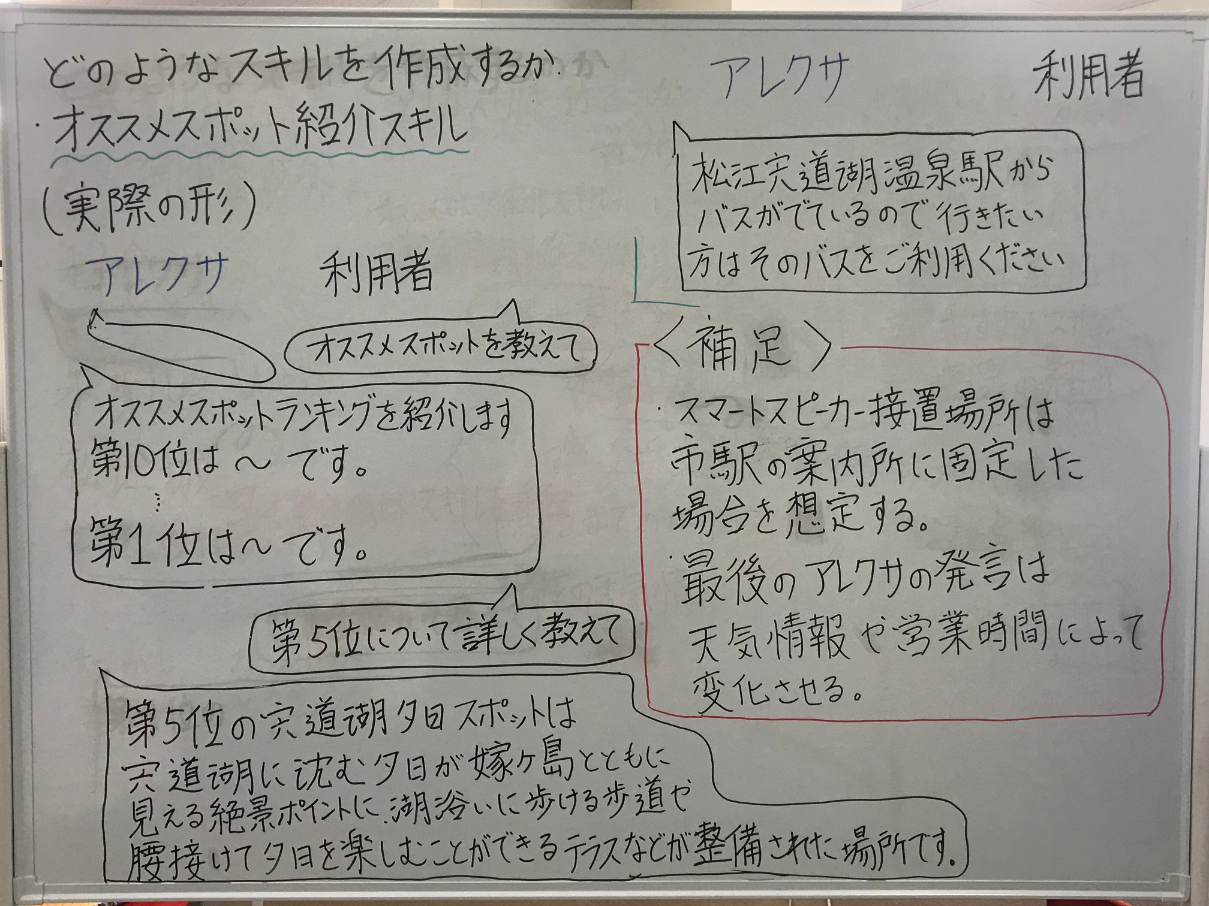 どのようなスキルを作成するか
・オススメスポット紹介スキル
(実際の形)
アレクサ 利用者
オススメスポットを教えて
オススメスポットランキングを紹介します
第10位は〜です。
⋮
第1位は〜です。
第5位について詳しく教えて
第5位の宍道湖夕日スポットは
宍道湖に沈む夕日が嫁ヶ島とともに
見える絶景ポイントに、湖沿いに歩ける歩道や
腰接けて夕日を楽しむことができるテラスなどが整備された場所です。
アレクサ 利用者
松江宍道湖温泉駅から
バスがでているので行きたい
方はそのバスをご利用ください
〈補足〉
・スマートスピーカー接置場所は
市駅の案内所に固定した
場合を想定する。
・最後のアレクサの発言は
天気情報や営業時間によって
変化させる。